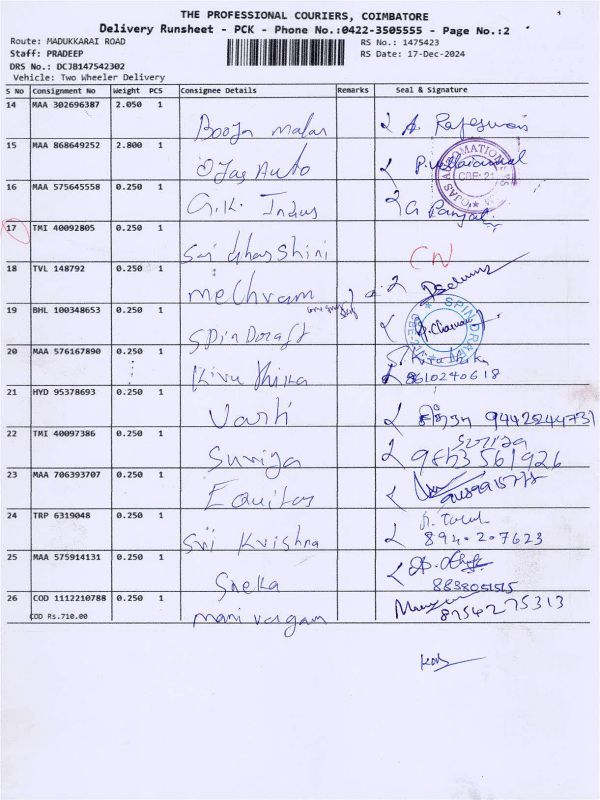 THE PROFESSIONAL COURIERS, COIMBATORE
Delivery Runsheet - PCK - Phone No.:0422-3505555 - Page No.:2
Route: MADUKKARAI ROAD RS No.: 1475423
Staff: PRADEEP RS Date: 17-Dec-2024
DRS No.: DCJB147542302
Vehicle: Two Wheeler Delivery
S No Consignment No Weight PCS Consignee Details Remarks Seal & Signature
14 MAA 302696387 2.050 1
Booja malar A. Rajeswari
15 MAA 868649252 2.800 1
Ojas Auto
16 MAA 575645558 0.250 1
G.K. Indus
17 TMI 40092805 0.250 1
Sai dharshini CN
18 TVL 148792 0.250 1
mechram
19 BHL 100348653 0.250 1
SPINDRAFT
20 MAA 576167890 0.250 1
Kiruthika Kiruthika
8610240618
21 HYD 95378693 0.250 1
Varti
22 TMI 40097386 0.250 1
Suriya Suriya
23 MAA 706393707 0.250 1
Equitas
24 TRP 6319048 0.250 1
Sri Krishna
894.207623
25 MAA 575914131 0.250 1
Sneka
26 COD 1112210788 0.250 1
COD Rs.710.00
8754275313